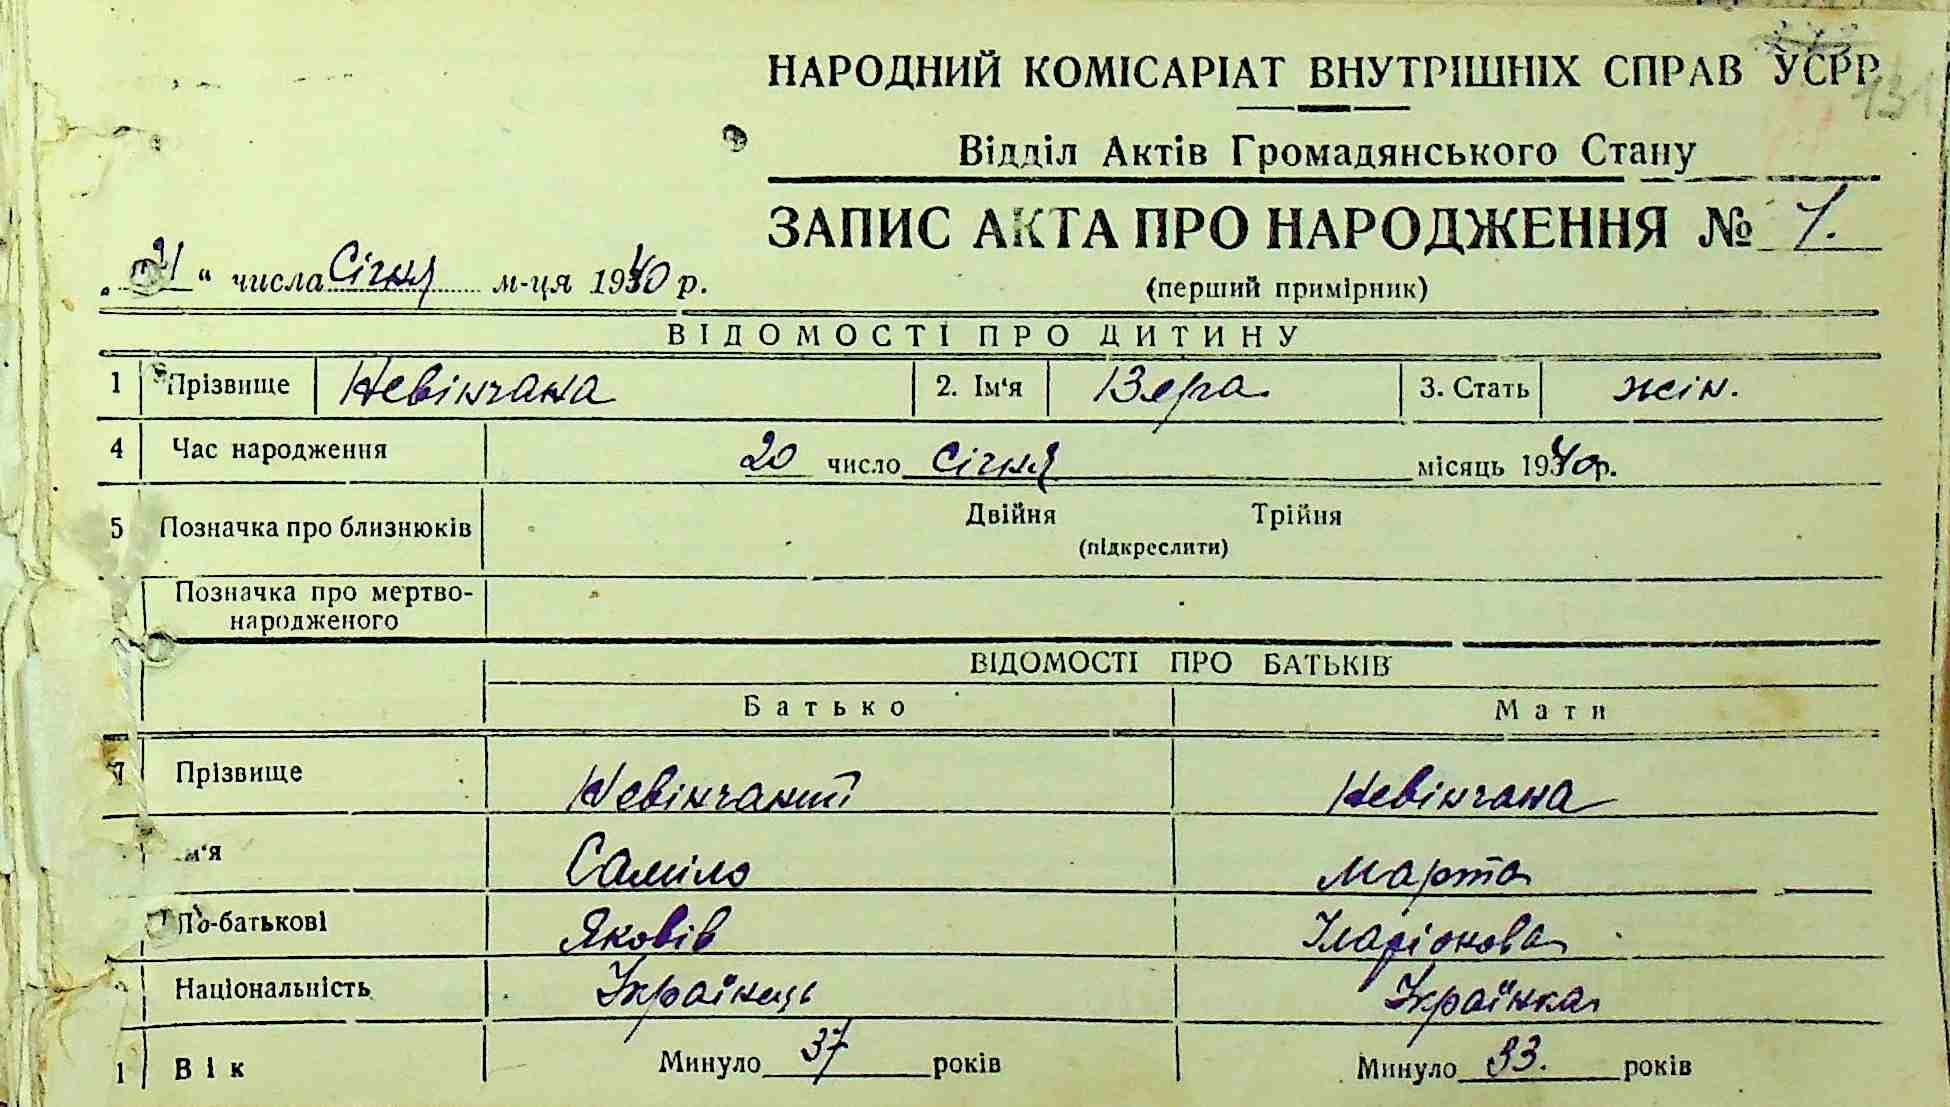 НАРОДНИЙ КОМІСАРІАТ ВНУТРІШНІХ СПРАВ УСРР
131
Відділ Актів Громадянського Стану
ЗАПИС АКТА ПРО НАРОДЖЕННЯ № 1.
„21“ числа Січня м-ця 1940 р.
(перший примірник)
ВІДОМОСТІ ПРО ДИТИНУ
1 Прізвище Невінчана 2. Ім‘я Вера 3. Стать жін.
4 Час народження 20 число Січня місяць 1940р.
5 Позначка про близнюків Двійня Трійня
(підкреслити)
Позначка про мертво-
народженого
ВІДОМОСТІ ПРО БАТЬКІВ
Батько Мати
7 Прізвище Невінчаний Невінчана
м‘я Саміло Марта
По-батькові Яковів Іларіонова
Національність Українець Українка
1 Вік Минуло 37 років Минуло 33. років